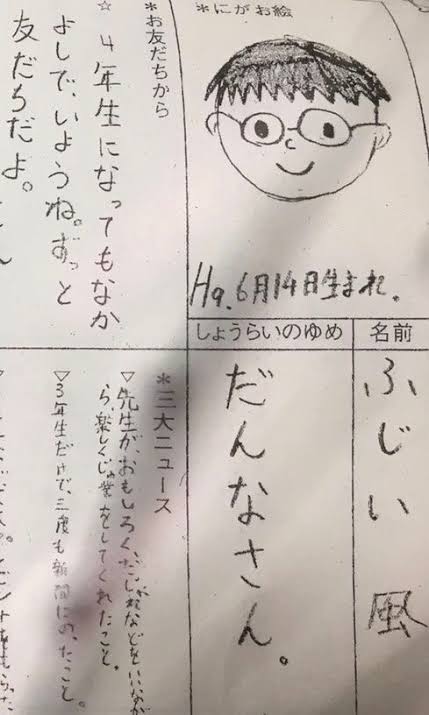 *にがお絵
H9.6月14日生まれ。
名前
ふじい 風
しょうらいのゆめ
だんなさん。
*お友だちから
☆ 4年生になってもなか
よしで、いようね。ずっと
友だちだよ。
*三大ニュース
▽先生が、おもしろく、だじゃれなどをいいなが
ら、楽しくじゅ業をしてくれたこと。
▽3年生だけで、三度も新聞にのったこと。